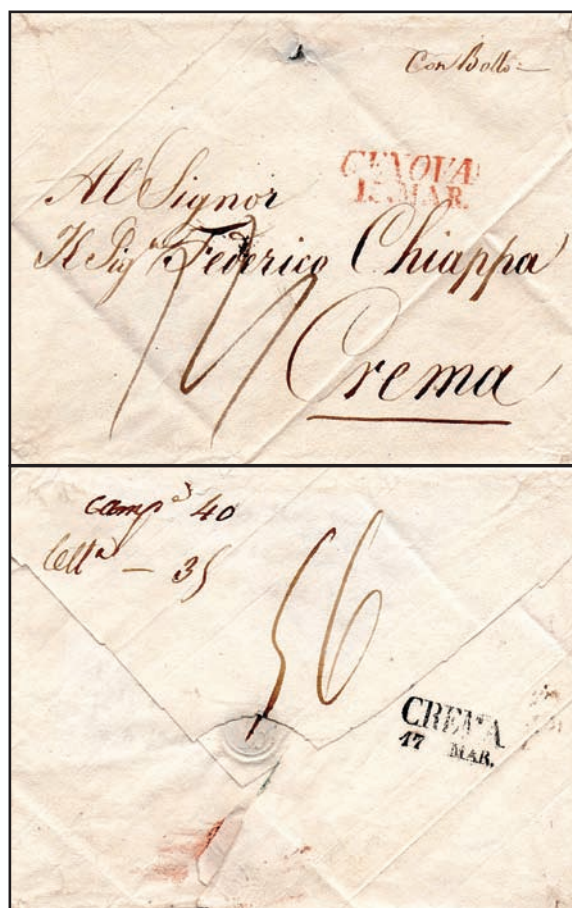 Con Bollo
GENOVA
15 MAR.
Al Signor
Il Sigr Federico Chiappa
Crema
campe 40
letta — 35
56
CREMA
17 MAR.